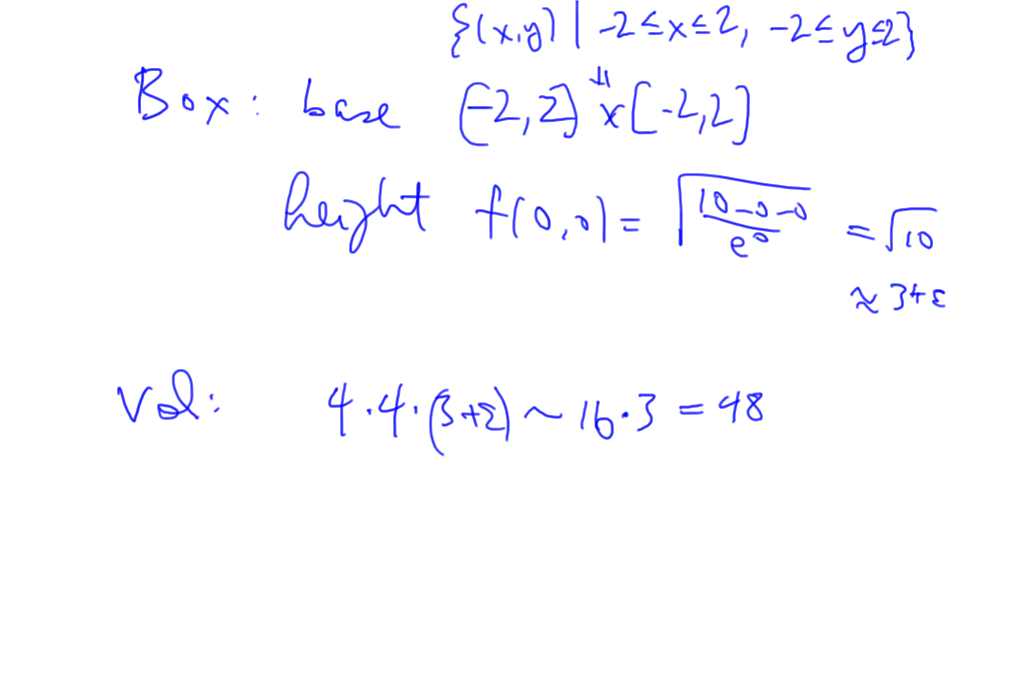 {(x,y) | -2≤x≤2, -2≤y≤2}
Box: base [-2,2] x [-2,2]
height f(0,0) = √((10-0-0)/e⁰) = √10
≈ 3+ε
Vol: 4·4·(3+ε) ~ 16·3 = 48